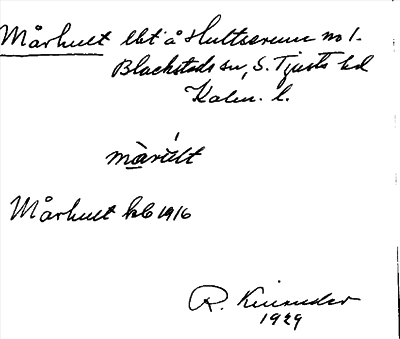 Mårhult lht å Hultserum no 1.
Blackstads sn, S. Tjusts hd
Kalm. l.
màrúlt
Mårhult kb 1916
R. Kinander
1929